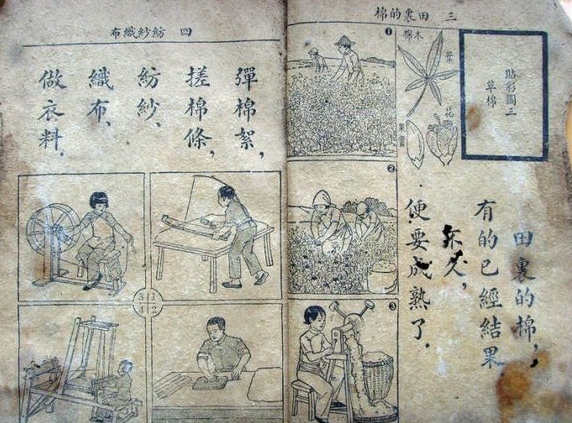 三 田裏的棉
貼彩圖三
草棉
木棉
葉
花
果實
1
2
3
田裏的棉，
有的已經結果
不久，
便要成熟了．
四 紡紗織布
彈棉絮，
搓棉條，
紡紗、
織布、
做衣料．
3 1
4 2